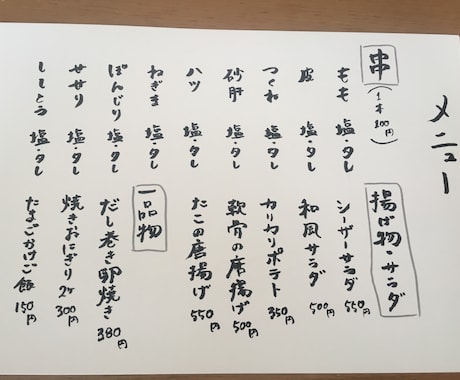 メニュー
串
(1本200円)
もも 塩・タレ
皮 塩・タレ
つくね 塩・タレ
砂肝 塩・タレ
ハツ 塩・タレ
ねぎま 塩・タレ
ぼんじり 塩・タレ
せせり 塩・タレ
ししとう 塩・タレ
揚げ物・サラダ
シーザーサラダ 550円
和風サラダ 500円
カリカリポテト 350円
軟骨の唐揚げ 500円
たこの唐揚げ 550円
一品物
だし巻き卵焼き 380円
焼きおにぎり2ケ 300円
たまごかけご飯 150円